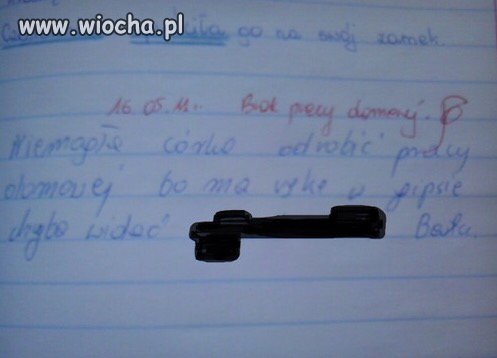 www.wiocha.pl
go na swój zamek.
16.05.11.. Brak pracy domowej.
Niemogła córka odrobić pracy
domowej bo ma rękę w gipsie
chyba widać